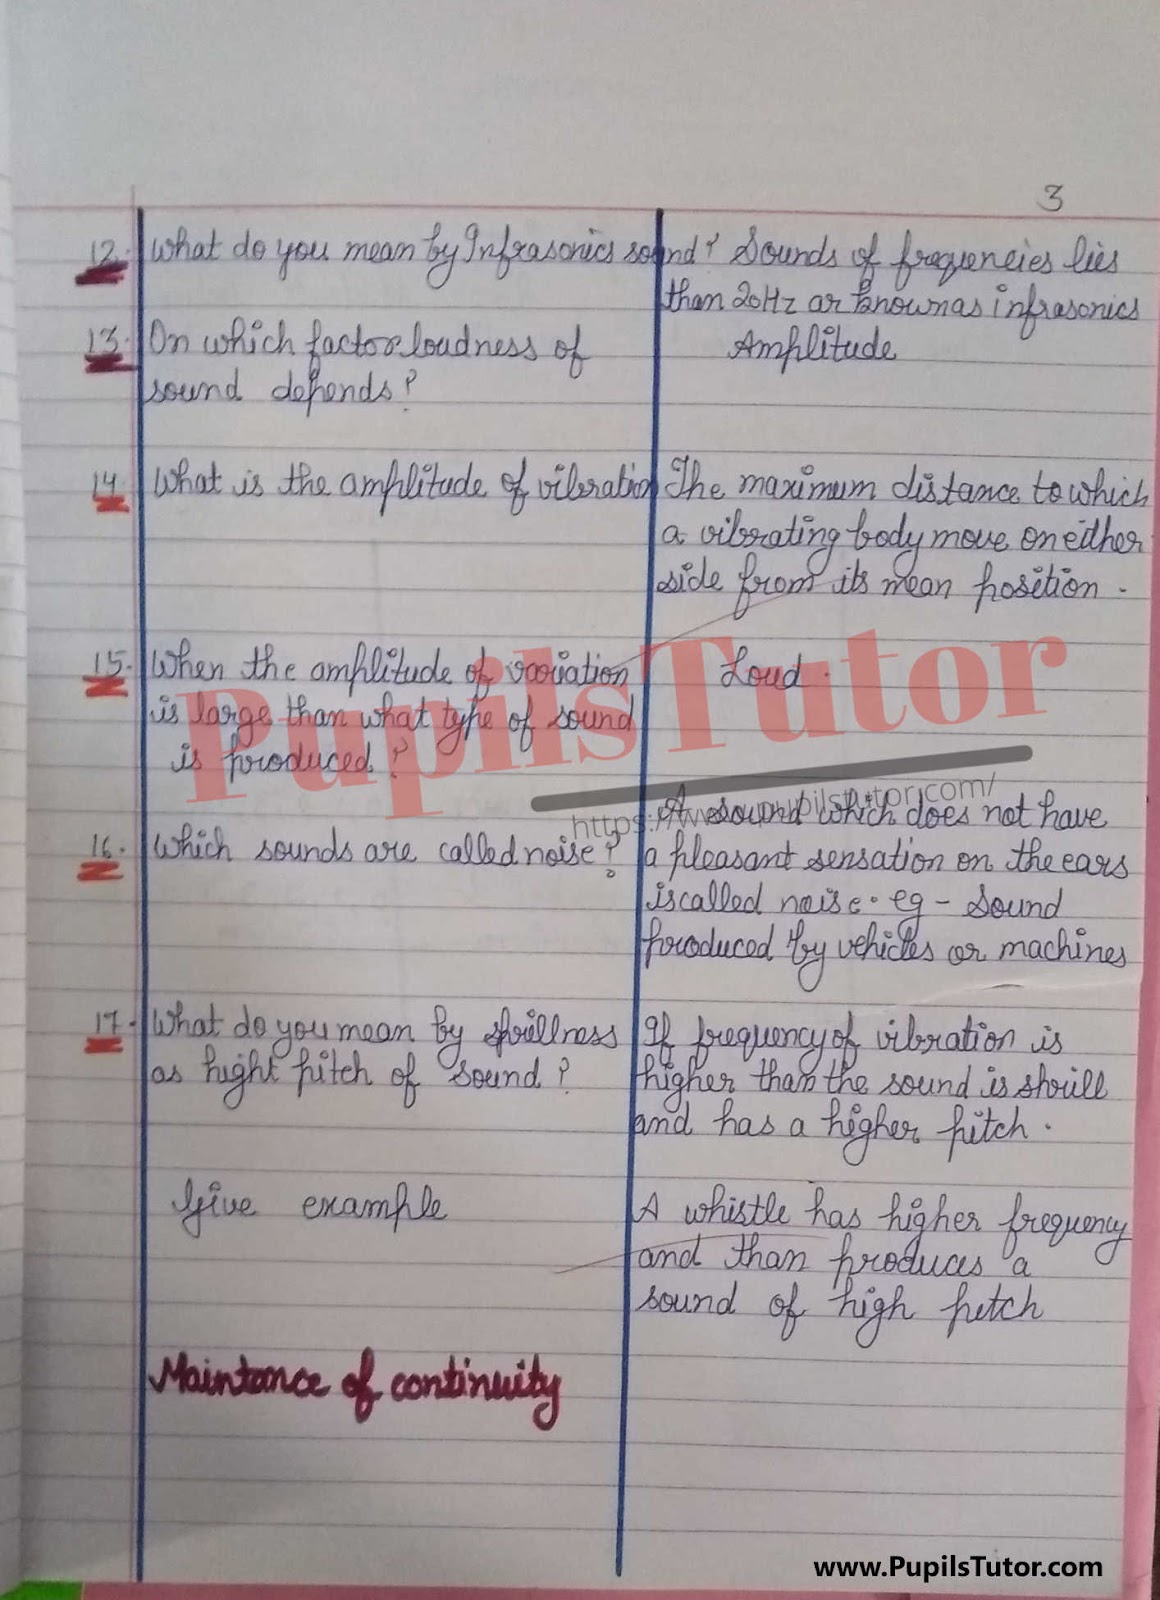 3
12. What do you mean by Infrasonics sound? Sounds of frequencies lies
than 20Hz ar knownas infrasonics
13. On which factor loudness of
Amplitude
sound depends?
14. What is the amplitude of vibration
The maximum distance to which
a vibrating body move on either
side from its mean position.
15. When the amplitude of variation
is large than what type of sound
is produced?
Loud.
16. Which sounds are called noise?
A sound which does not have
a pleasant sensation on the ears
is called noise. eg - Sound
produced by vehicles or machines
17. What do you mean by shrillness
as hight pitch of sound?
If frequency of vibration is
higher than the sound is shrill
and has a higher pitch.
Give example
A whistle has higher frequency
and than produces a
sound of high pitch
Maintance of continuity
PupilsTutor
https://www.pupilstutor.com/
www.PupilsTutor.com